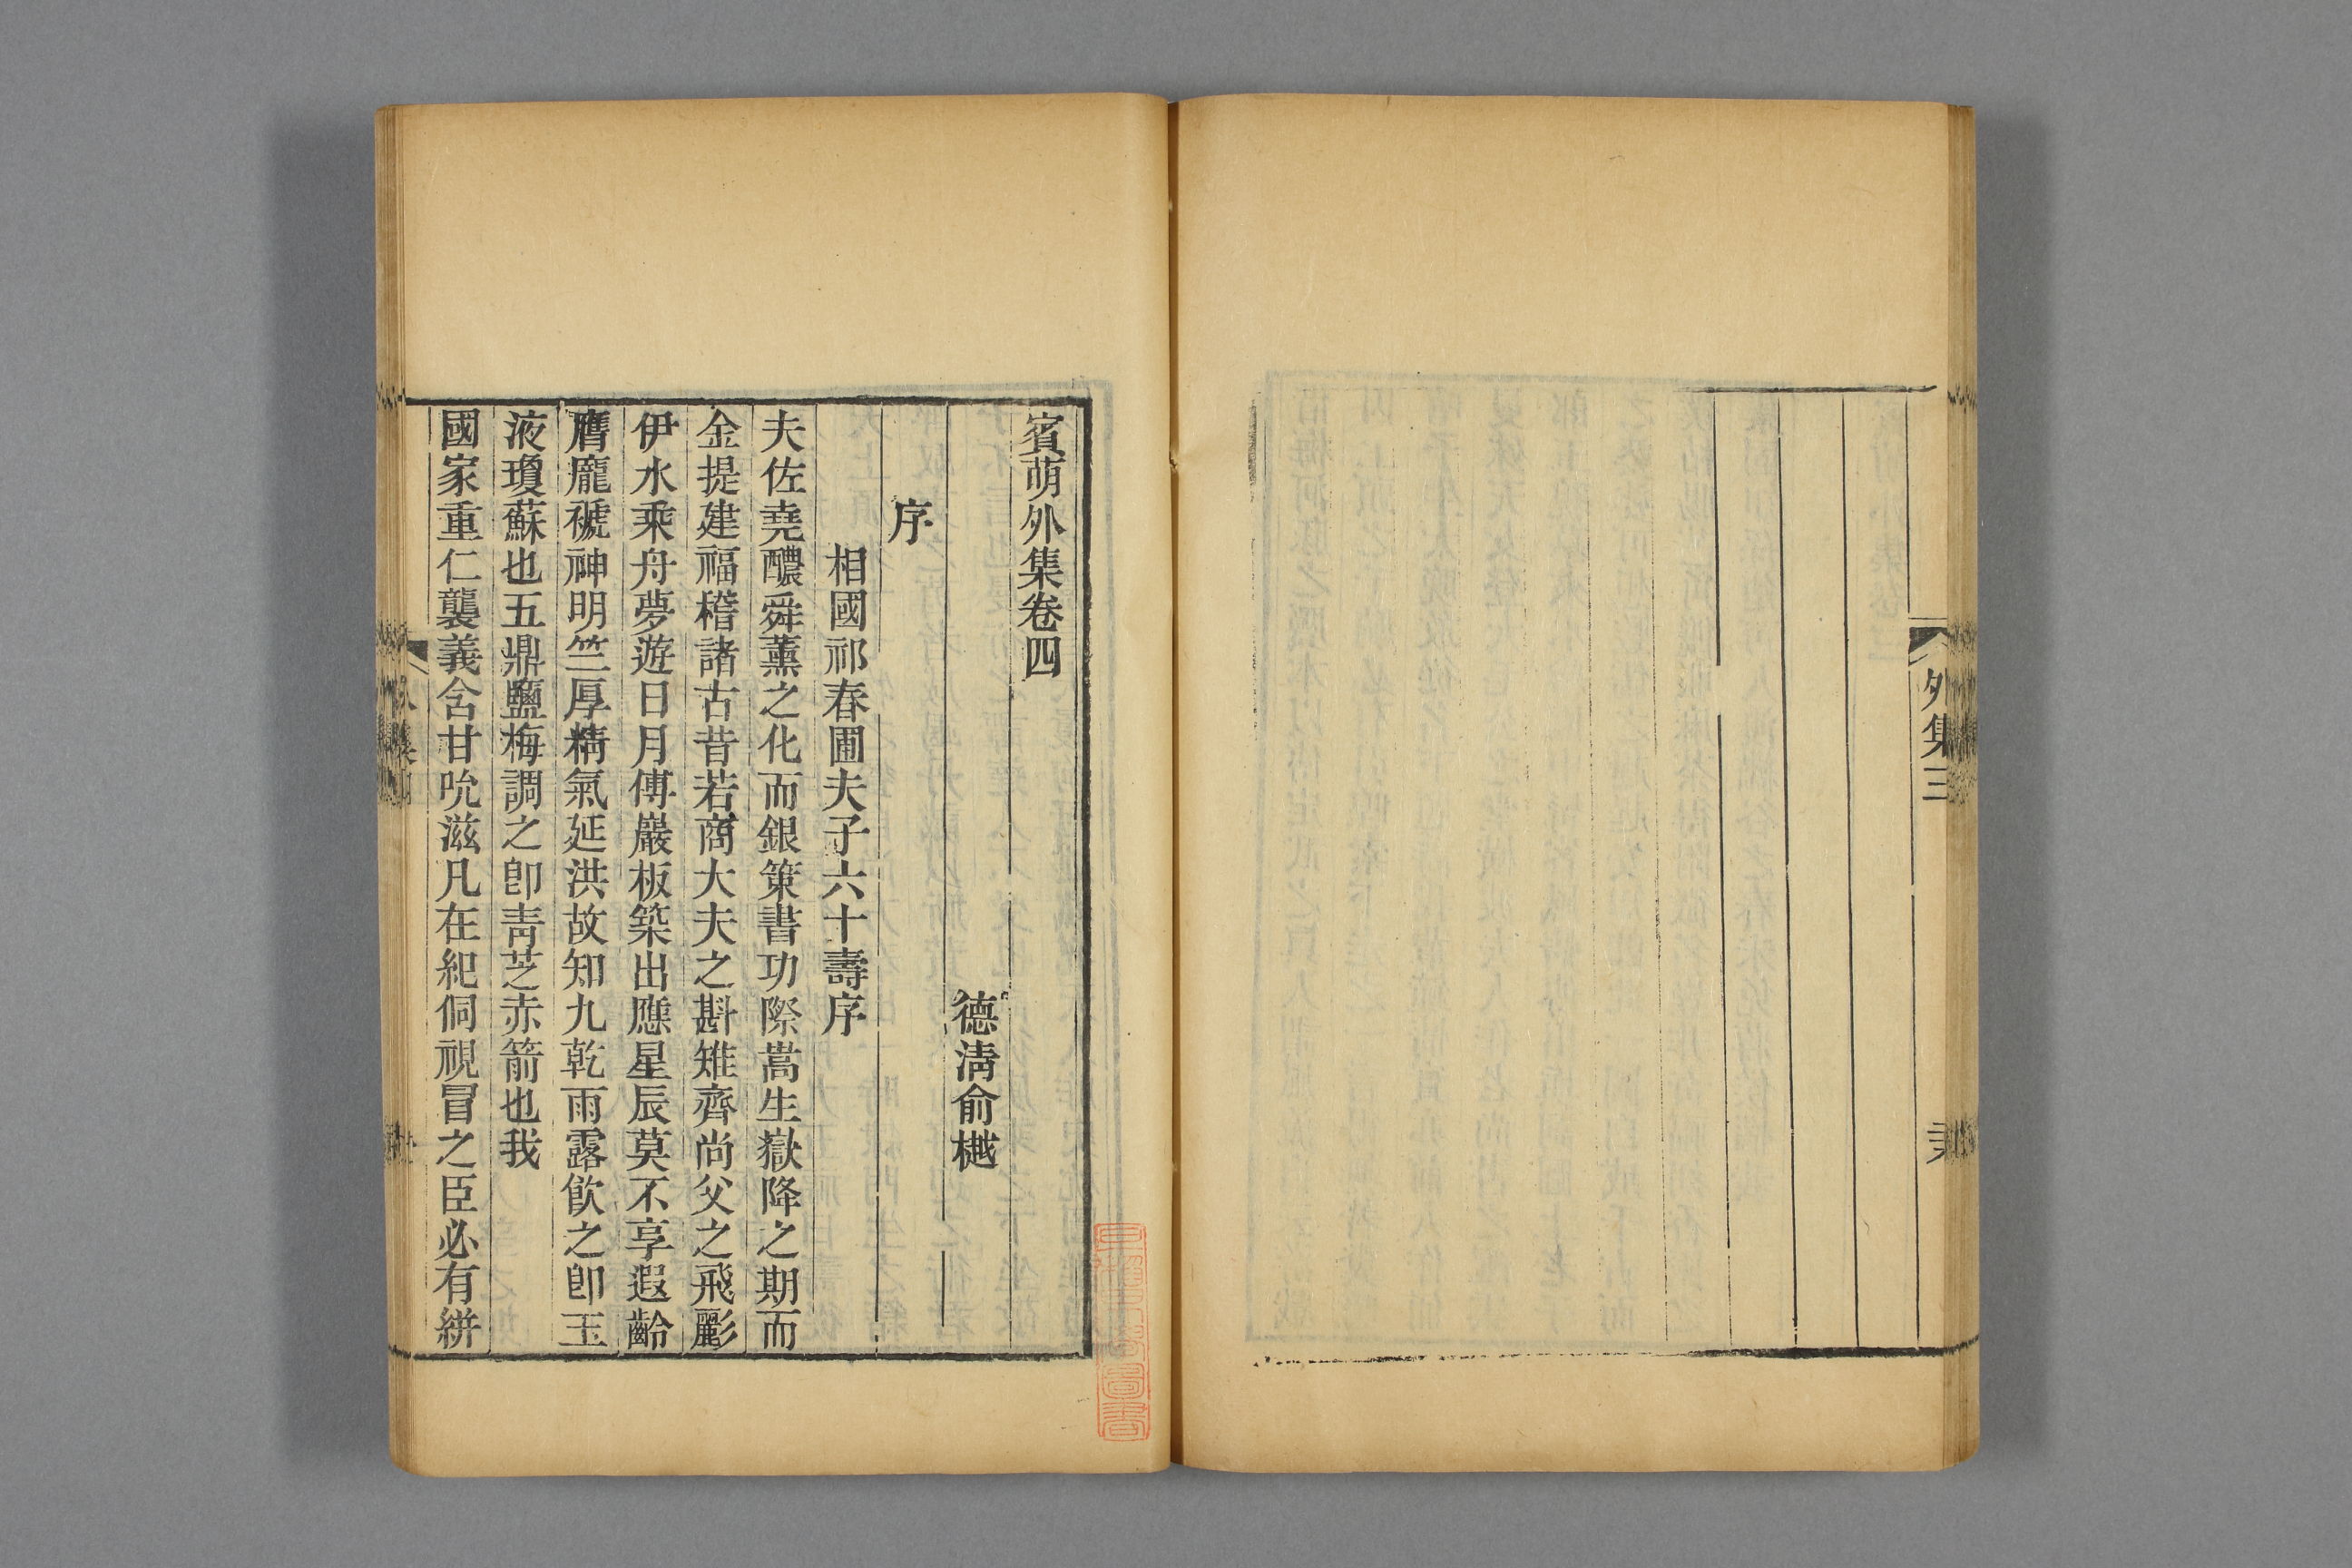 外集三
賓萌外集卷四
德淸俞樾
序
相國祁春圃夫子六十壽序
夫佐堯醲舜薰之化而銀策書功際嵩生嶽降之期而
金提建福稽諸古昔若商大夫之斟雉齊尚父之飛彲
伊水乘舟夢遊日月傅巖板築出應星辰莫不享遐齡
膺龐褫神明竺厚精氣延洪故知九乾雨露飮之卽玉
液瓊蘇也五鼎鹽梅調之卽靑芝赤箭也我
國家重仁襲義含甘吮滋凡在紀侗視冒之臣必有絣